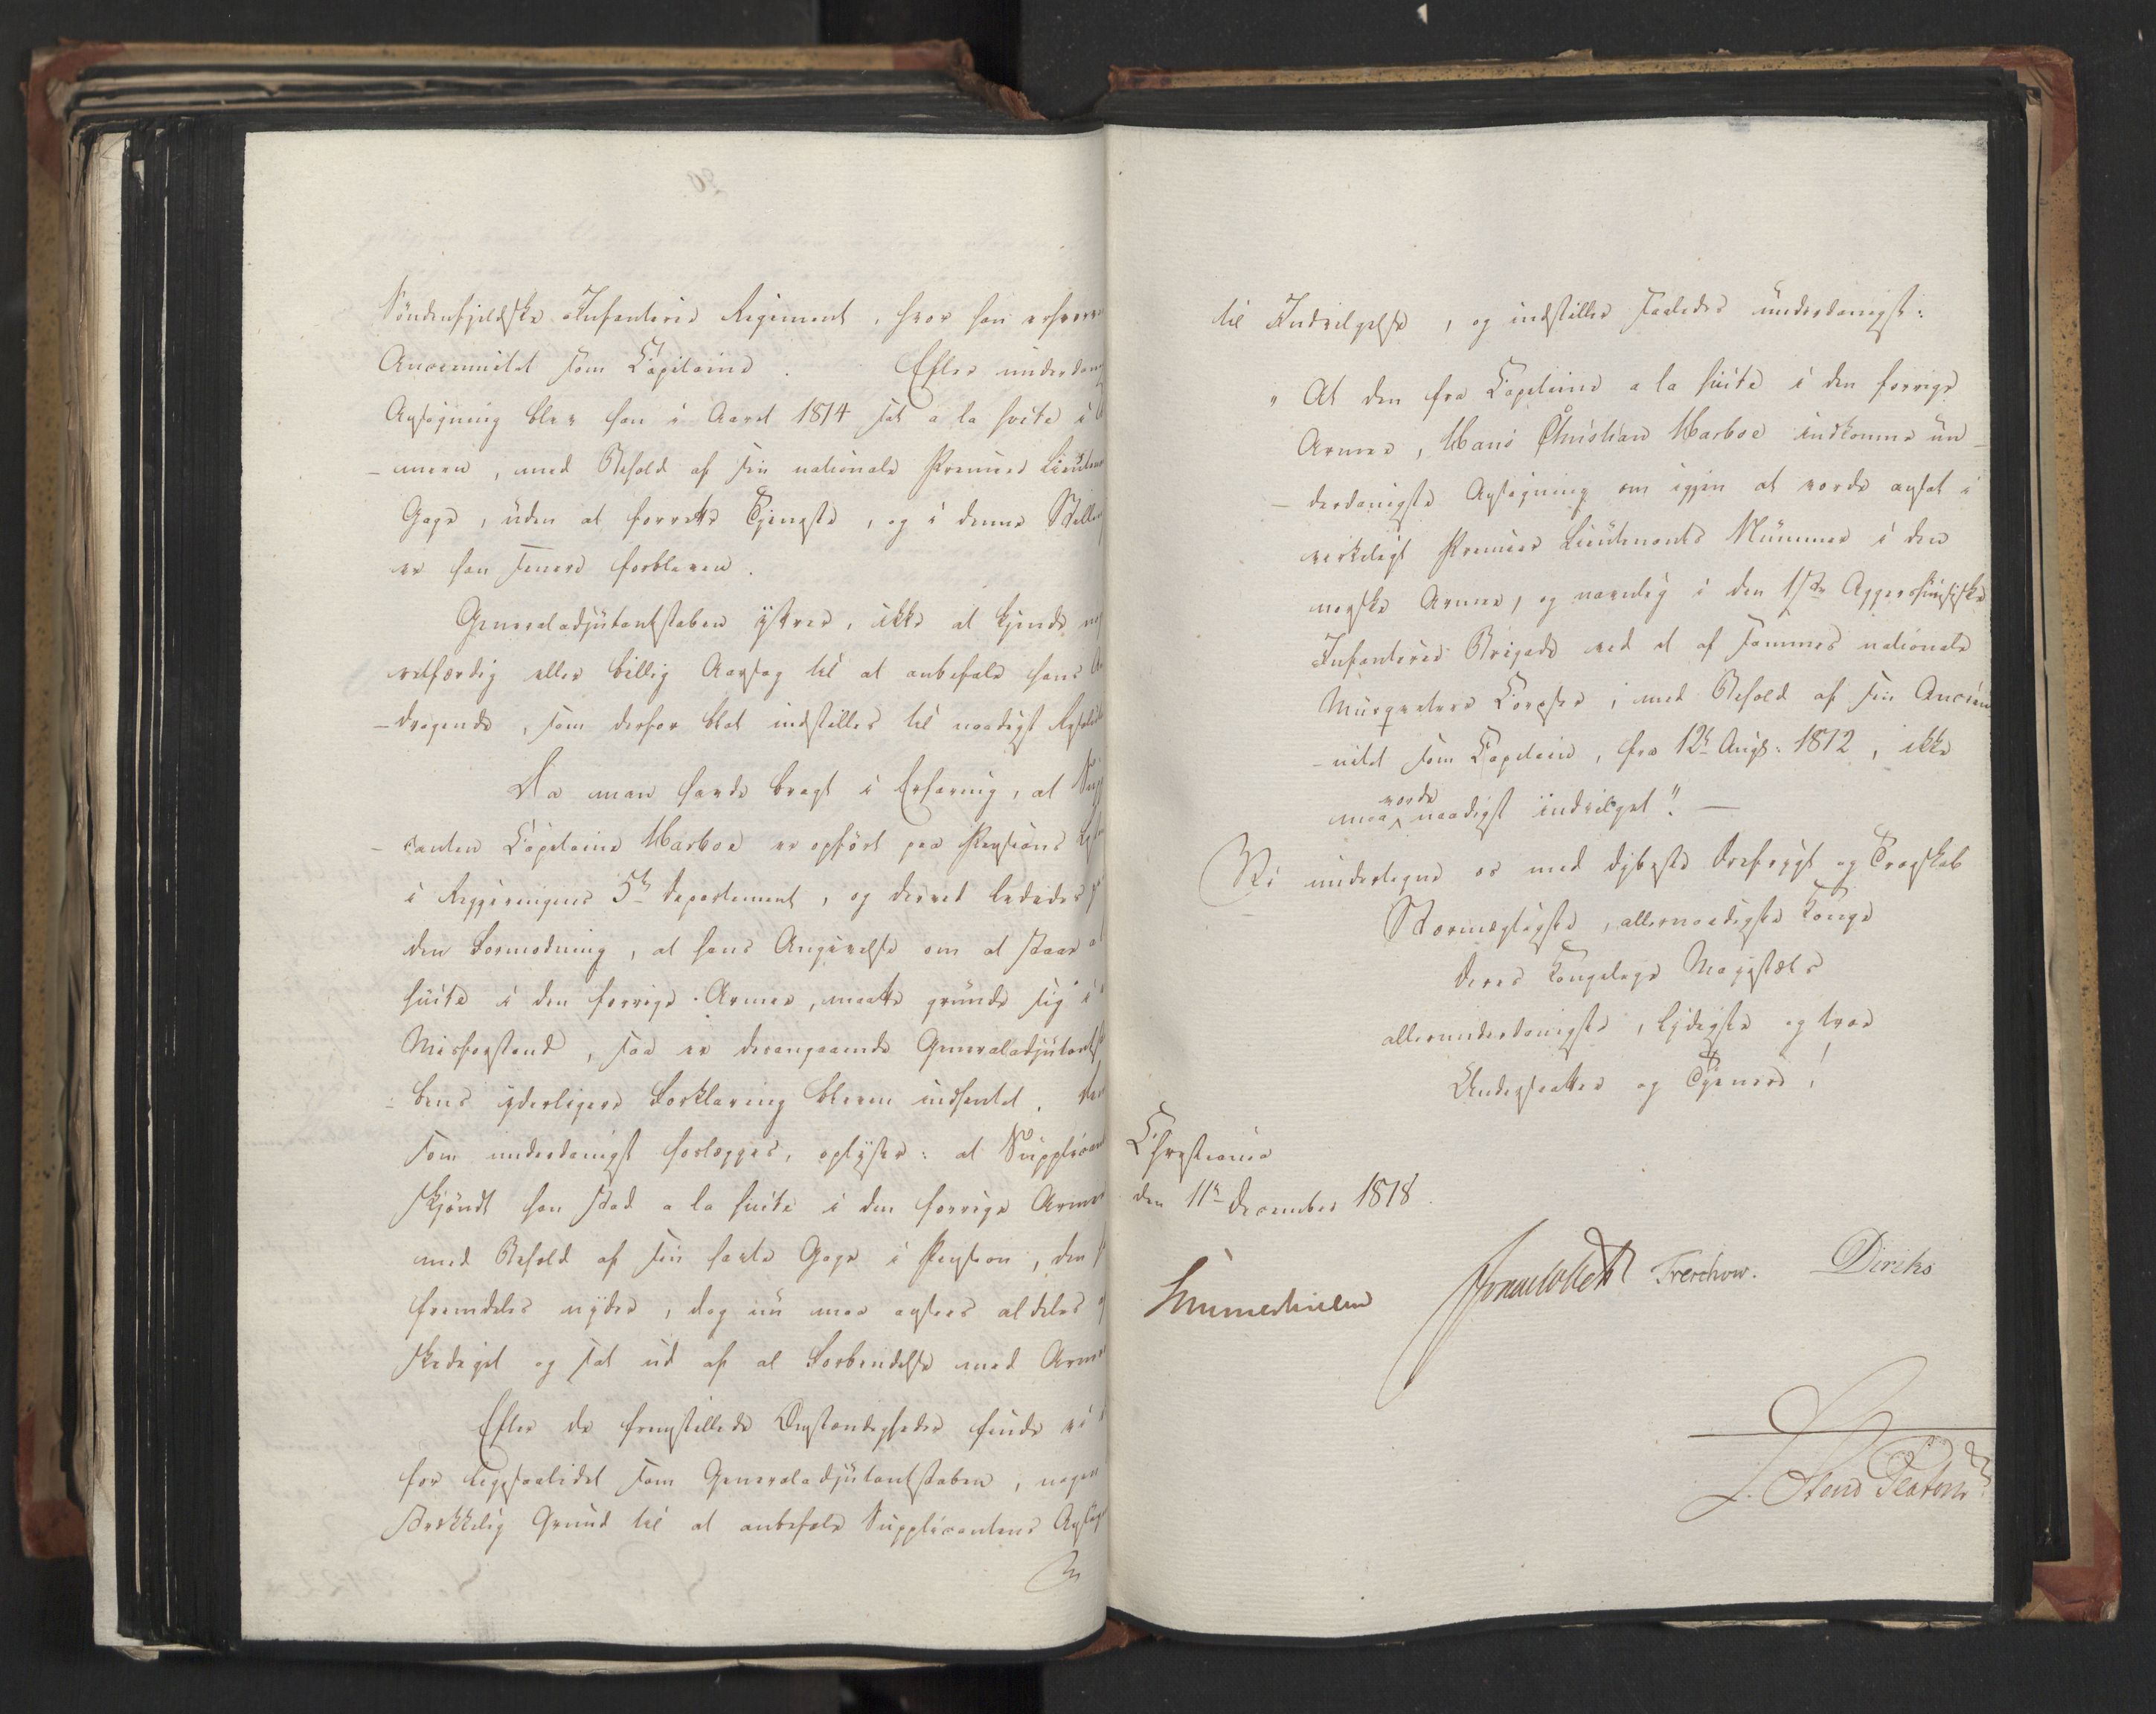 Söndenfjeldske Infanterie Regiment, hvor han erhvervede
Ancennitet som Capitaine. Efter underdan
Ansøgning blev han i Aaret 1814 sat a la svite i
-meen, med Behold af sin nationale Premier Lieuten
Gage, uden at forrette Tjeneste, og i denne Stilling
er han senere forbleven.
Generaladjutantstaben yttrer, ikke at kjende no
retfærdig eller billig Aarsag til at anbefale hans
-dragende, som derfor blot indstilles til naadigst
Da man havde bragt i Erfaring, at Supp
-canten Capitaine Harboe er opført paa Pensions
i Regjeringens 5te Departement, og derved lededes
den Formodning, at hans Angivelse om at staae a
suite i den forrige Armee, maatte grunde sig i
Misforstand, saa er desangaaende Generaladjutantsta
-bens yderligere Forklaring bleven indhentet. Den
som underdanigst forlægges, oplyser: at Supplicant
skjöndt han stod a la suite i den forrige Armee
med Behold af sin havte Gage i Pension, den
fremdeles nyder, dog nu maa ansees aldeles
skediget og sat ud af al Forbindelse med Arme
Efter de fremstillede Omstændigheder finde vi
for ligesaalidet som Generaladjutantstaben, nogen
strekkelig Grund til at anbefale Supplicantens Ansøgn
til
til Indvilgelse, og indstiller saaledes underdanigst:
"At den fra Capitaine a la suite i den forrige
Armee, Hans Christian Harboe indkomne un-
-derdanigste Ansøgning om igjen at vorde ansat i
virkeligt Premier Lieutenants Nummer i den
norske Armee, og navnlig i den 1ste Aggershuusiske
Infanterie Brigade ved et af sammes nationale
Musqueteer Corpser, med Behold af sin Ancien
-nitet som Capitain, fra 12te Augt: 1812, ikke
vorde
maa naadigst indvilget". —
Vi undertegne os med dybeste Ærefrygt og Troskab
Stormægtigste, allernaadigste Konge
Deres Kongelige Majestæts
allerunderdanigste, lydigste og troe
Undersaatter og Tjenere!
Christiania
den 11te December 1818.
Sommerhielm Treschow. Diriks
L. Stoud Platou